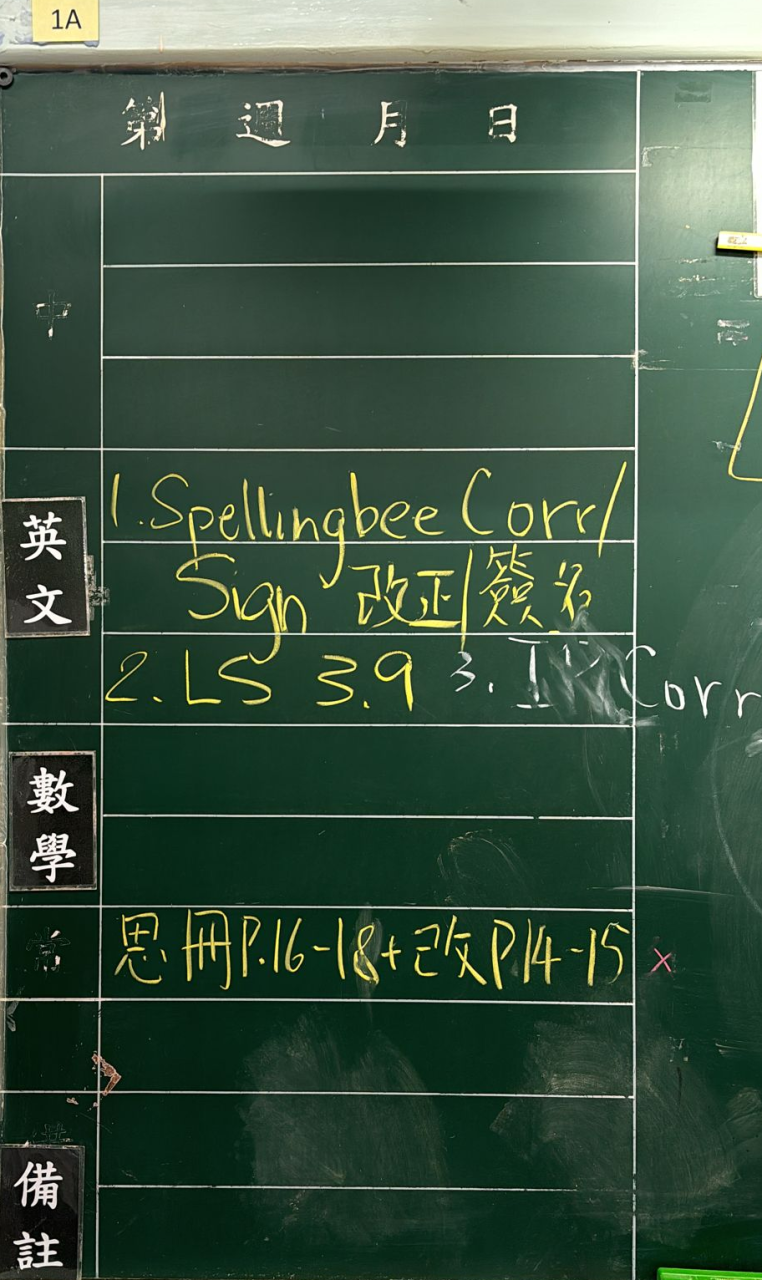 1A
第 週 月 日
中
英文
1. Spellingbee Corr/
Sign 改正/簽名
2. LS 3.9 3. Corr
數學
常
思冊P.16-18+改P14-15 x
備註